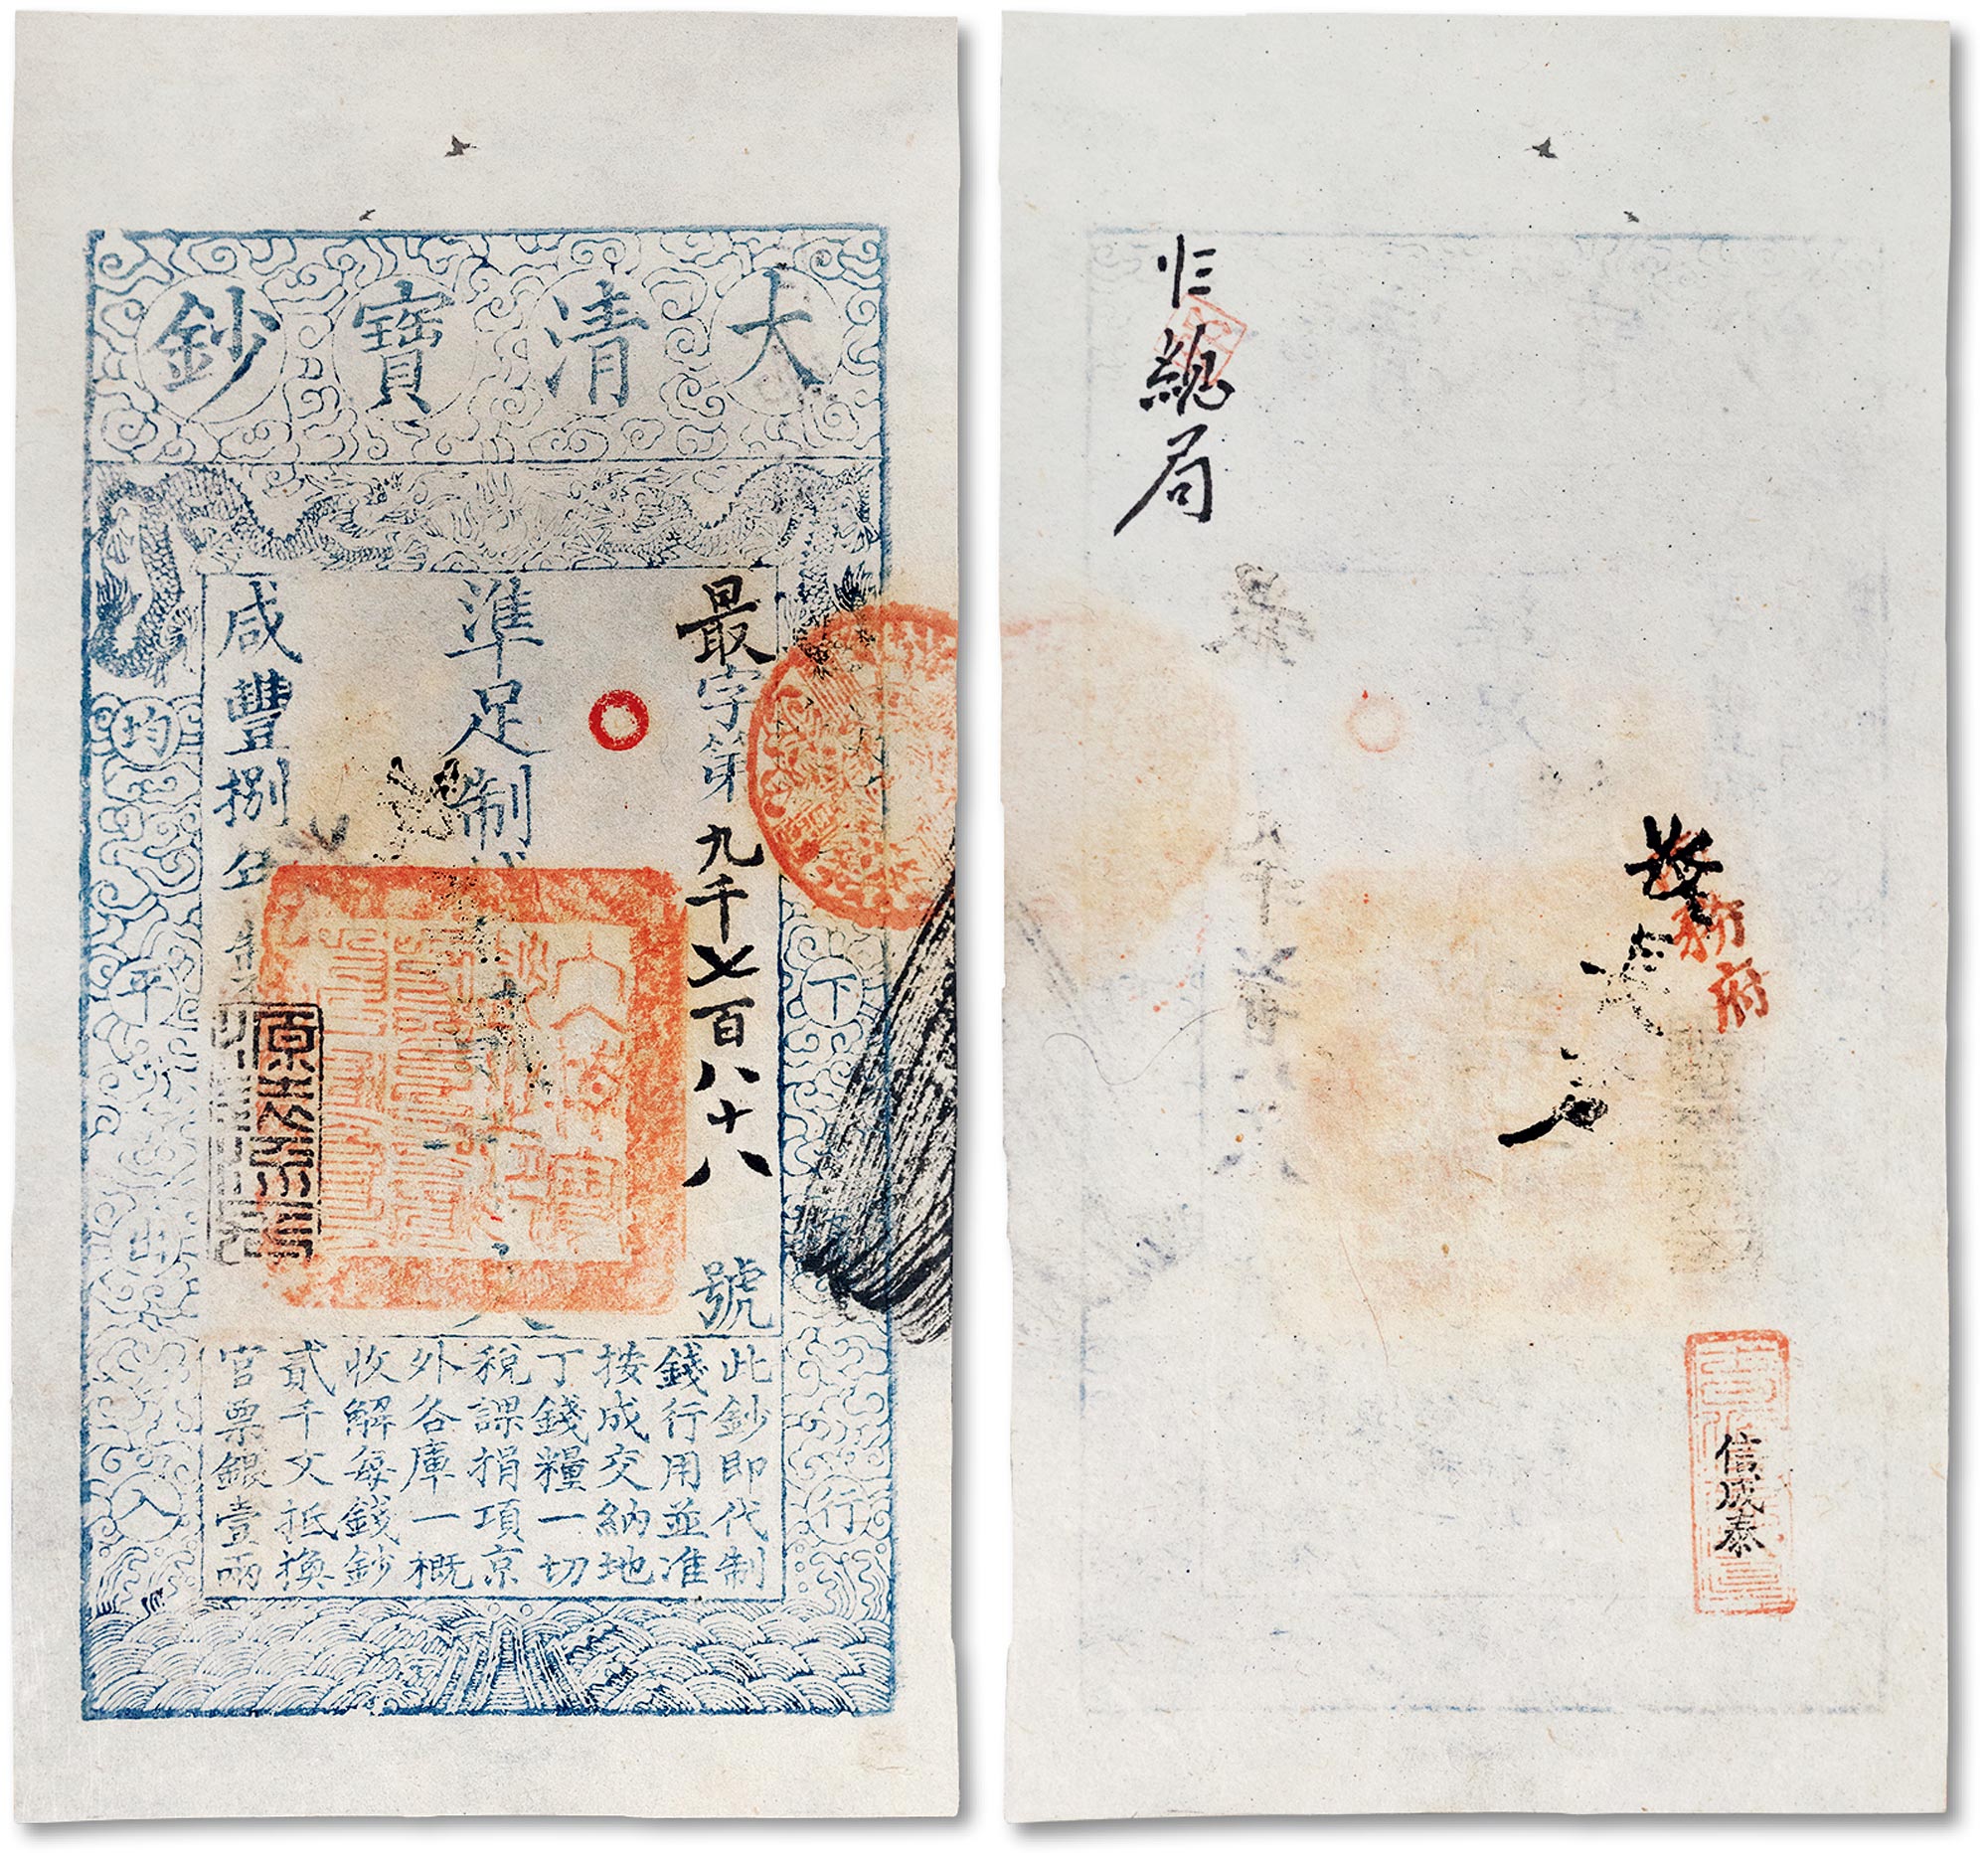 大清寶鈔
最字第九千七百八十八號
準足制
咸豐捌
下
行
均
平
出
入
此鈔即代制
錢行用並准
按成交納地
丁錢糧一切
稅課捐項京
外各庫一概
收解每錢鈔
貳千文抵換
官票銀壹兩
總局
府
信成泰